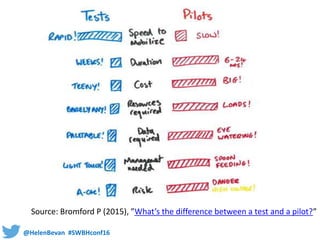 Tests Pilots
RAPID! Speed to mobilize SLOW!
WEEKS! Duration 6-24 MTHS!
TEENY! Cost BIG!
BARELY ANY! Resources required LOADS!
PALATABLE! Data required EYE WATERING!
LIGHT TOUCH! Management needed SPOON FEEDING!
A-OK! Risk DANGER HIGH VOLTAGE!
Source: Bromford P (2015), "What's the difference between a test and a pilot?"
@HelenBevan #SWBHconf16